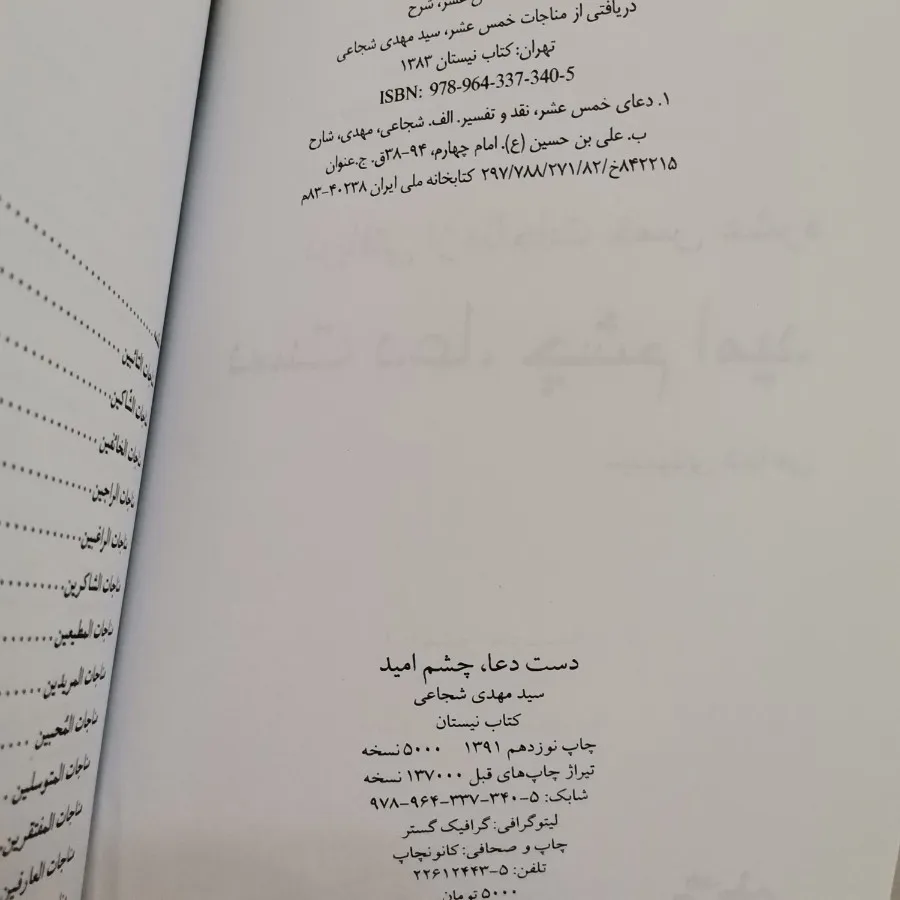 دریافتی از مناجات خمس عشر، سید مهدی شجاعی
تهران: کتاب نیستان ۱۳۸۳
ISBN: 978-964-337-340-5
۱. دعای خمس عشر، نقد و تفسیر. الف. شجاعی، مهدی، شارح
ب. علی بن حسین (ع). امام چهارم، ۹۴-۳۸ق. ج.عنوان
۸۴۲۲۱۵خ/۲۹۷/۷۸۸/۲۷۱/۸۲ کتابخانه ملی ایران ۴۰۲۳۸-۸۳م
دست دعا، چشم امید
سید مهدی شجاعی
کتاب نیستان
چاپ نوزدهم ۱۳۹۱ ۵۰۰۰ نسخه
تیراژ چاپ‌های قبل ۱۳۷۰۰۰ نسخه
شابک: ۵-۳۴۰-۳۳۷-۹۶۴-۹۷۸
لیتوگرافی: گرافیک گستر
چاپ و صحافی: کانونچاپ
تلفن: ۵-۲۲۶۱۲۴۴۳
۵۰۰۰ تومان
مناجات التائبین
مناجات الشاکین
مناجات الخائفین
مناجات الراجین
مناجات الراغبین
مناجات الشاکرین
مناجات المطیعین
مناجات المریدین
مناجات المُحبین
مناجات المتوسلین
مناجات المفتقرین
مناجات العارفین